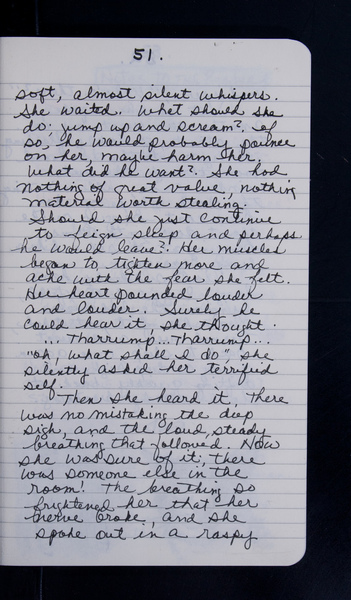 51.
soft, almost silent whispers.
She waited. What should she
do; jump up and scream? If
so, he would probably pounce
on her, maybe harm her.
What did he want? She had
nothing of great value, nothing
material worth stealing.
Should she just continue
to feign sleep and perhaps
he would leave? Her muscles
began to tighten more and
ache with the fear she felt.
Her heart pounded louder
and louder. Surely he
could hear it, she thought.
... Tharrump... Tharrump...
"oh, what shall I do", she
silently asked her terrified
self.
Then she heard it, there
was no mistaking the deep
sigh, and the loud, steady
breathing that followed. Now
she was sure of it; there
was someone else in the
room! The breathing so
frightened her that her
nerve broke, and she
spoke out in a raspy